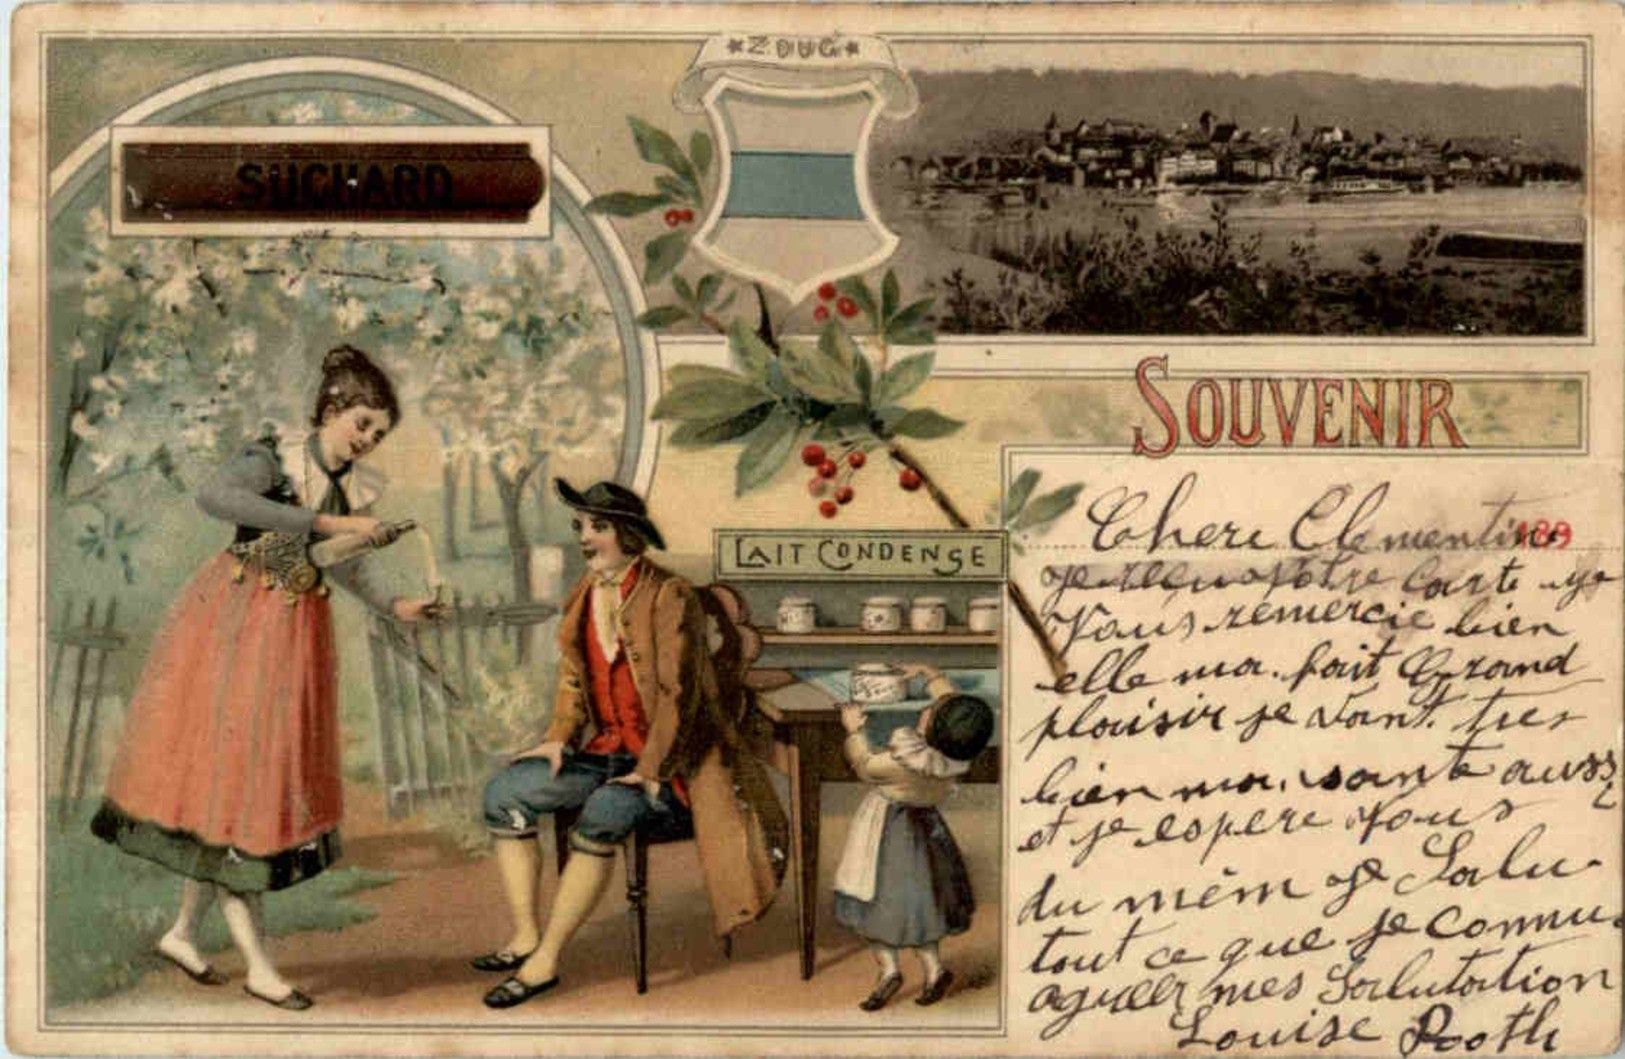 *ZOUG*
SUCHARD
SOUVENIR
LAIT CONDENSE
189
Chere Clementine
je recu votre carte je
Vous remercie bien
elle ma. fait Grand
plaisir je sont. tres
bien ma. sante aussi
et je espere Vous
du mêm je Salu
tout ce que je connu.
agreer mes Salutation
Louise Rooth